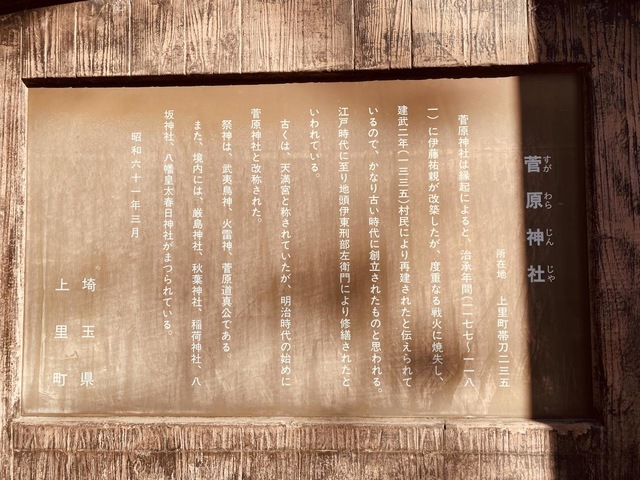 菅原神社
すが わら じん じゃ
所在地　上里町帯刀二三五
菅原神社は縁起によると、治承年間(一一七七〜一一八
一)に伊藤祐親が改築したが、度重なる戦火に焼失し、
建武二年(一三三五)村民により再建されたと伝えられて
いるので、かなり古い時代に創立されたものと思われる。
江戸時代に至り地頭伊東刑部左衛門により修繕されたと
いわれている。
古くは、天満宮と称されていたが、明治時代の始めに
菅原神社と改称された。
祭神は、武夷鳥神、火雷神、菅原道真公である
また、境内には、厳島神社、秋葉神社、稲荷神社、八
坂神社、八幡皇太春日神社がまつられている。
昭和六十一年三月
埼玉県
上里町